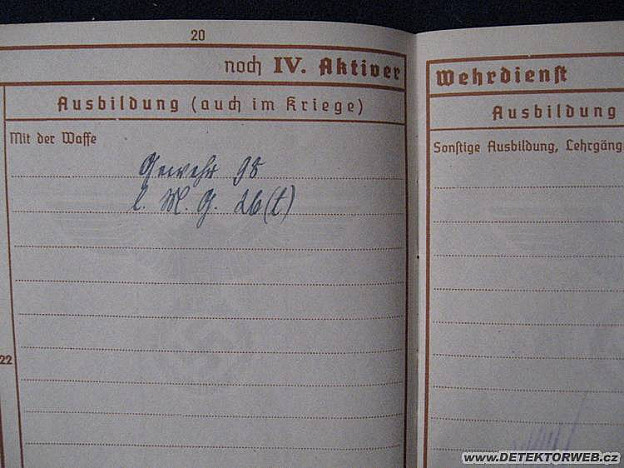 20
noch IV. Aktiver
Wehrdienst
Ausbildung (auch im Kriege)
Mit der Waffe
Gewehr 98
l. M. G. 26(t)
22
Ausbildung
Sonstige Ausbildung, Lehrgäng
www.DETEKTORWEB.cz